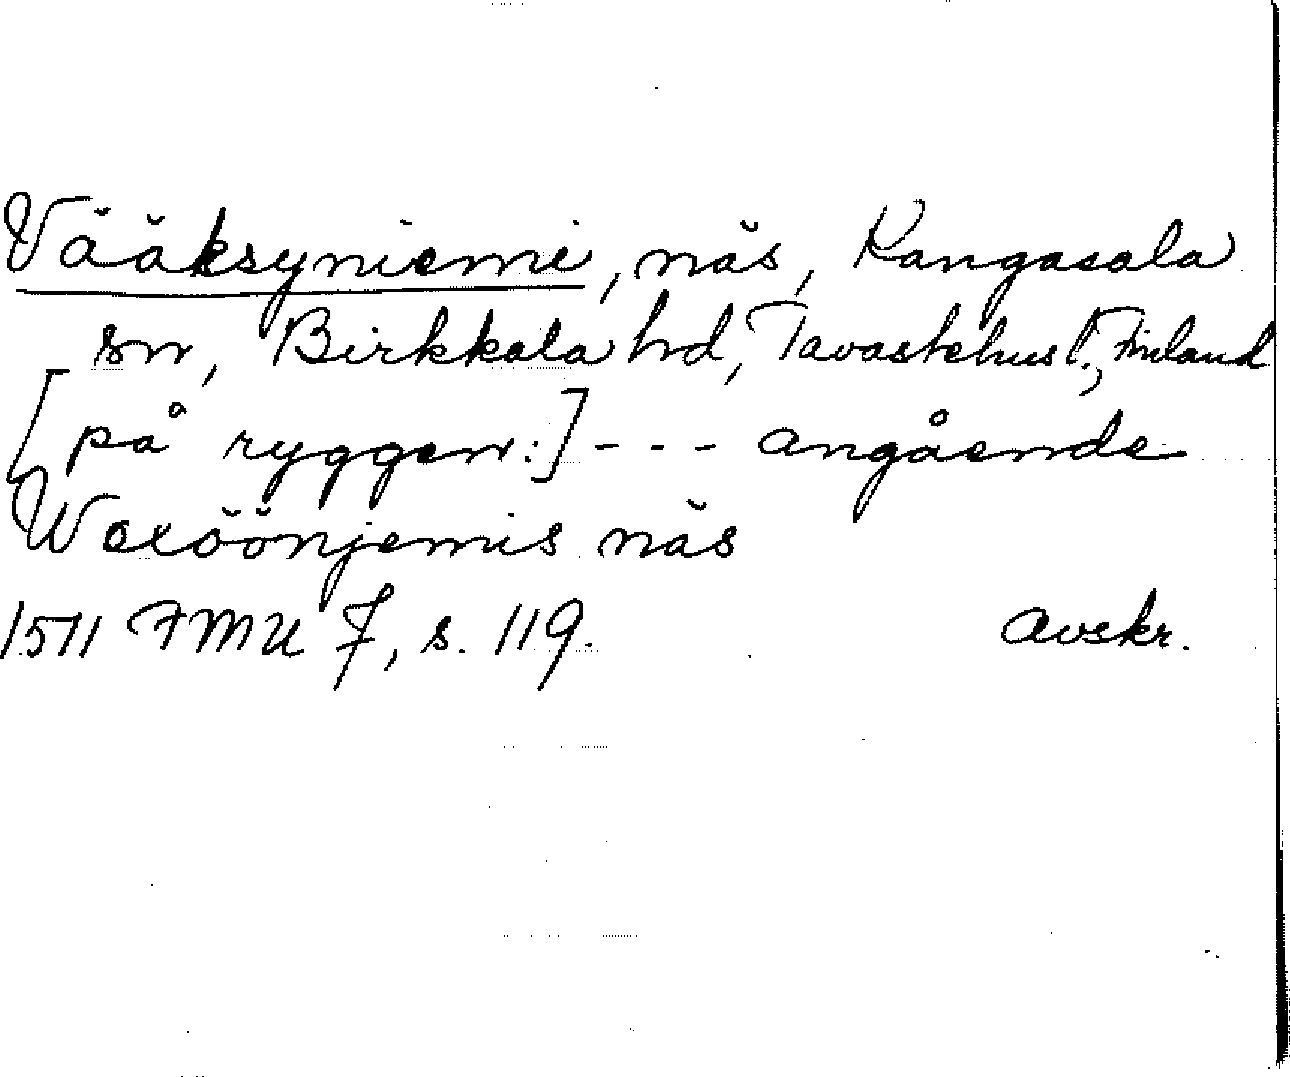 Vääksyniemi, näs, Kangasala
sn, Birkkala hd, Tavastehus l., Finland
[på ryggen:] - - - angående
Wexöönjemis näs
1511 FMU 7, s. 119. Avskr.